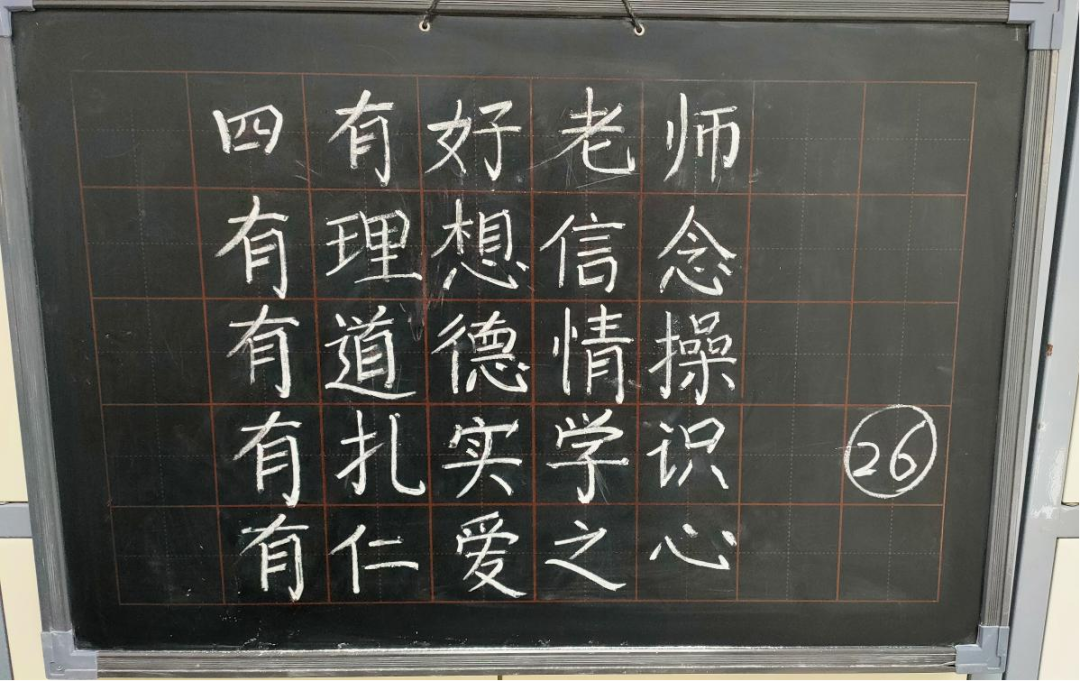 四有好老师
有理想信念
有道德情操
有扎实学识
26
有仁爱之心